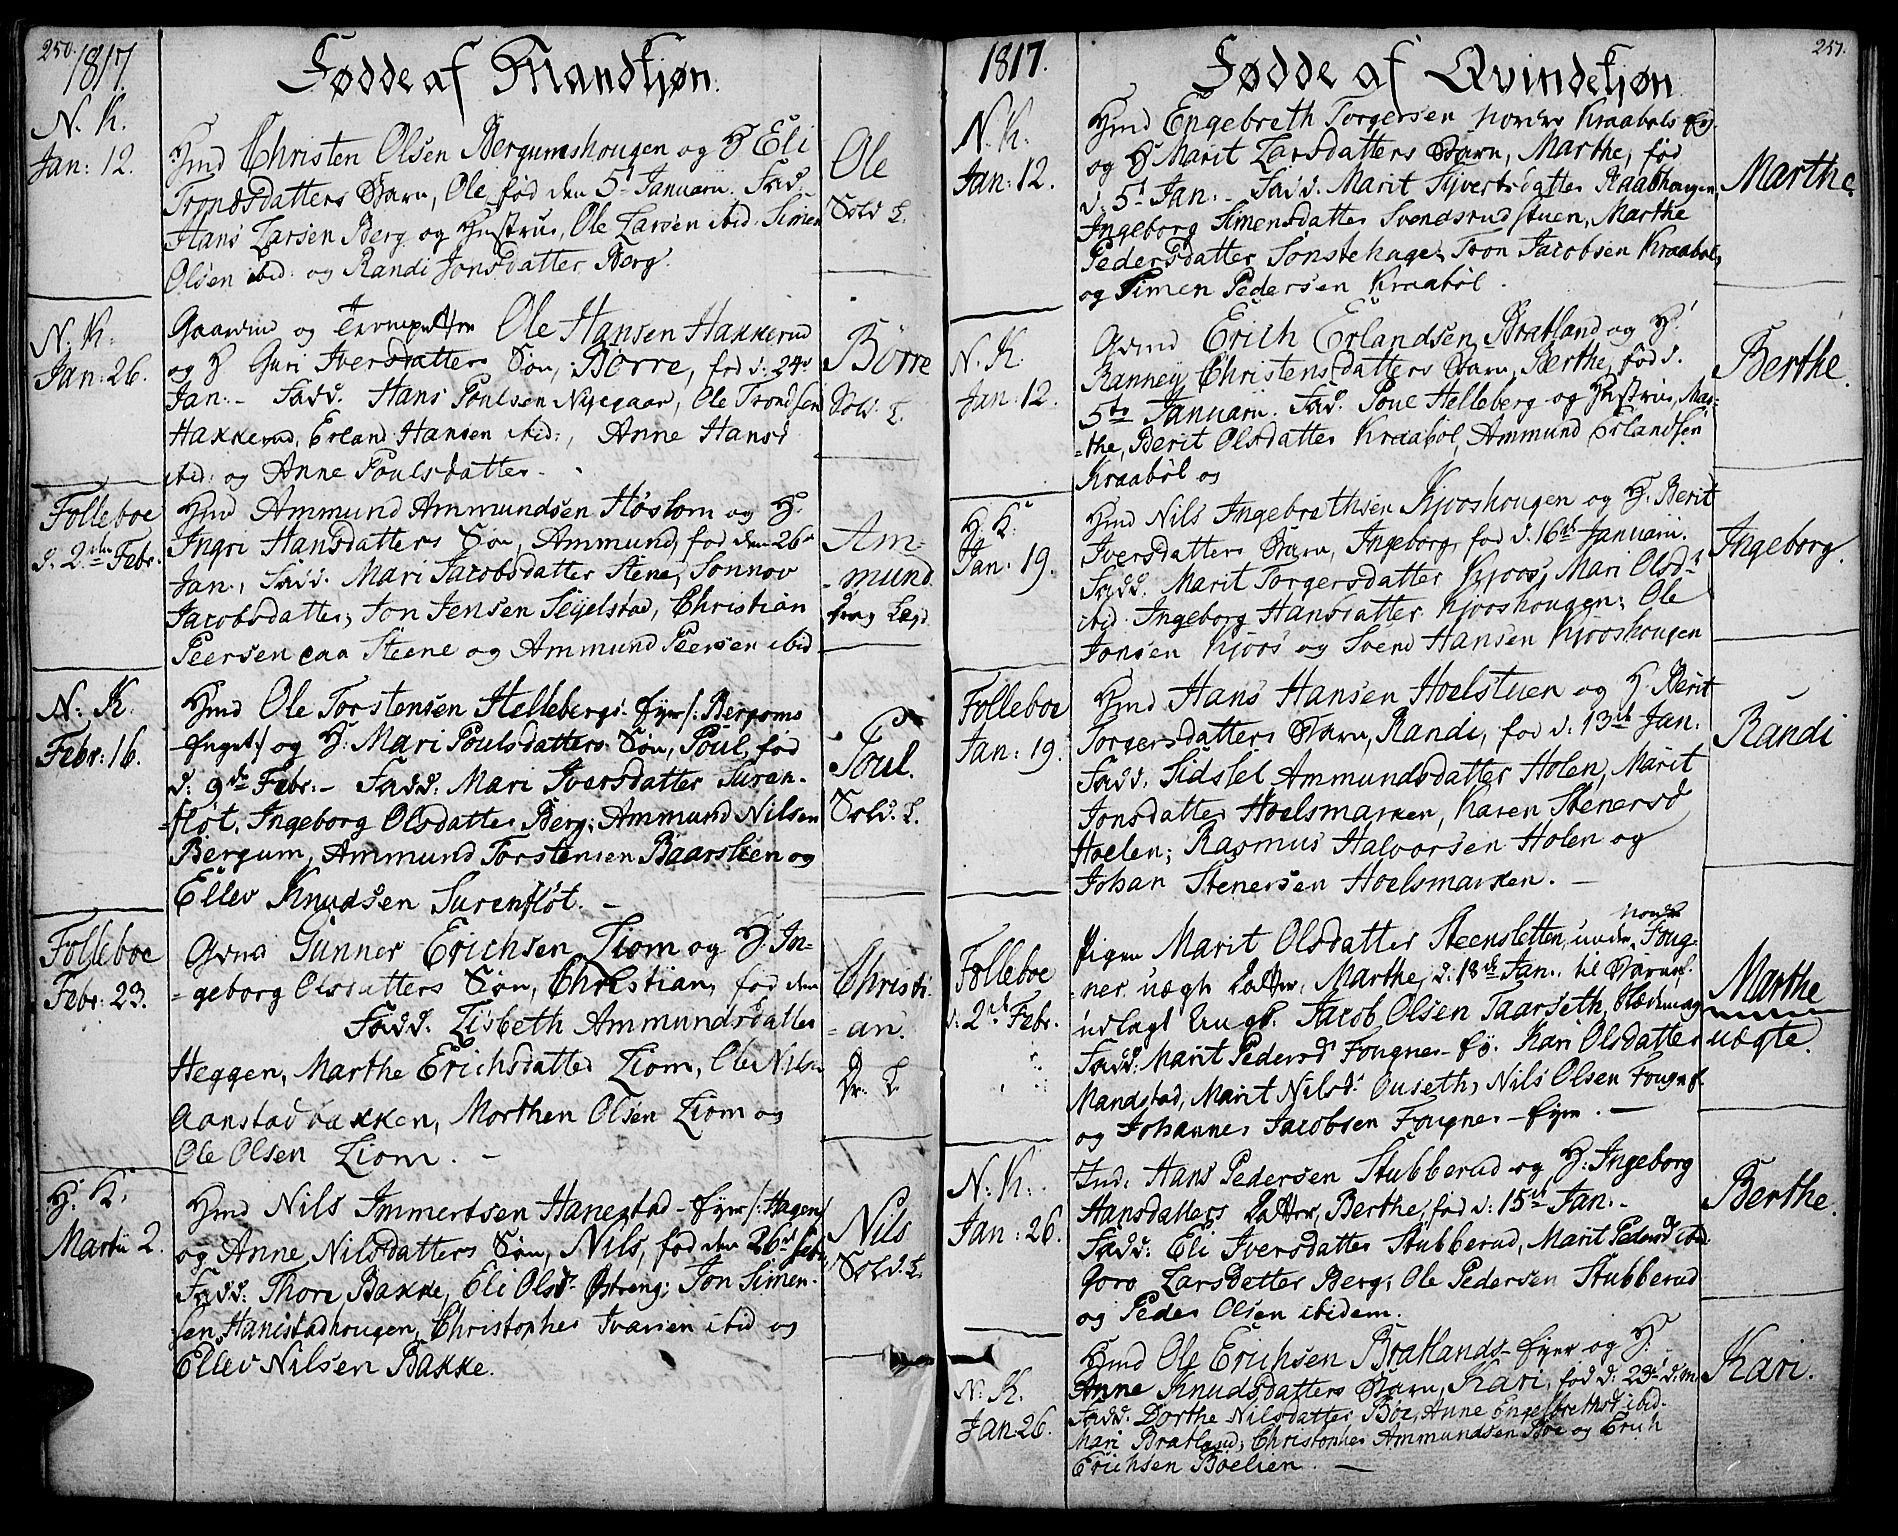 250.
1817.
Fødde af Mandkjøn.
N. K.
Jan: 12.
Hmd Christen Olsen Bergumshougen og H Eli
Trondsdatters Barn, Ole, fød den 5t Januarii. Fad.
Hans Larsen Berg og Hustrue, Ole Larsen ibid. Simen
Olsen ibid. og Randi Jonsdatter Berg.
Ole
Sold. L.
N. K.
Jan: 26.
Gaardmd og Ole Hansen Hakkerud
og H Guri Iversdatters Søn, Börre, fød d: 24de
Jan:- Fadd. Hans Poulsen Nyegaar, Ole Trondsen
Hakkerud, Erland Hansen ibid:, Anne Hansd
ibid: og Anne Poulsdatter.
Börre
Sold. L.
Folleboe
d. 2den Febr.
Hmd Ammund Ammundsen Høslom og H.
Ingri Hansdatters Søn, Ammund, fød den 26de
Jan., Fadd. Mari Jacobsdatter Stene, Sonnov
Jacobsdatter, Jon Jensen Segelstad, Christian
Peersen paa Steene og Ammund Peersen ibid
Am=
-mund.
Drag. Lægd.
N: K.
Febr: 16.
Hmd Ole Torstensen Hellebergs Eyer /: Bergoms
Enget:/ og H: Mari Poulsdatters Søn, Poul, fød
d: 9de Febr:- Fadd: Mari Iversdatter Suren-
-fløt, Ingeborg Olsdatter Berg, Ammund Nilsen
Bergum, Ammund Torstensen Baarslien og
Ellev Knudsen Surenfløt.-
Poul.
Sold. L.
Folleboe
Febr: 23.
Gdmd Gunner Erichsen Liom og H. In-
=geborg Olsdatters Søn, Christian, fød den
Fadd. Lisbeth Ammundsdatter
Heggen, Marthe Erichsdatter Liom, Ole Nils.
Aanstadbakken, Morthen Olsen Liom og
Ole Olsen Liom.-
Christi.
=an.
Dr. L.
H: K.
Martii 2.
Hmd Nils Immertsen Hanestad-Eyer /: Hagen/
og Anne Nilsdatters Søn, Nils, fød den 26de Febr.
Fadd: Thore Bakke, Eli Olsd. Østreng; Jon Simen-
sen Hanestadhougen, Christopher Ivarsen ibid og
Ellev Nilsen Bakke.
Nils
Sold. L.
1817.
Fødde af Qvindekjøn
251.
N. K.
Jan: 12.
Hmd Engebreth Torgersen nordre Kraabøls Ey.
og H Marit Larsdatters Barn, Marthe, fød
d. 5t Jan:- Fadd. Marit Syvertsdatter Kraabhougen
Ingeborg Simensdatter Svendsrudstuen, Marthe
Pedersdatter Sønstehage; Tron Jacobsen Kraabøl,
og Simen Pedersen Kraabøl.
Marthe
N. K.
Jan: 12.
Gdmd Erich Erlandsen Bratland og H.
Ranney Christensdatters Barn, Berthe, fød d.
5te Januarii. Fad. Poul Helleberg og Hustrue, Mar-
=the, Berit Olsdatter Kraabøl, Ammund Erlandsen
Kraabøl og
Berthe.
H. K.
Jan: 19.
Hmd Nils Ingebrethsen Kjooshougen og H. Berit
Iversdatters Barn, Ingeborg, fød d. 16de Januarii.
Fadd. Marit Torgersdatter Kjoos, Mari Olsd.
ibid. Ingeborg Hansdatter Kjooshougen; Ole
Jonsen Kjoos og Svend Hansen Kjooshougen
Ingeborg.
Folleboe
Jan: 19.
Hmd Hans Hansen Hoelstuen og H. Berit
Torgersdatters Barn, Randi, fød d: 13de Jan:
Fadd. Sidsel Ammundsdatter Holen, Marit
Jonsdatter Hoelsmarken, Karen Stenersd
Hoelen; Rasmus Halvorsen Holen og
Johan Stenersen Hoelsmarken.-
Randi
Folleboe
d: 2de Febr.
Pigen Marit Olsdatter Steensletten, under nordre Foug-
=ner uægte Datter, Marthe, d. 18de Jan. til Barnef.
udlagt Ungk. Jacob Olsen Taarseth,
Fadd: Marit Pedersd Fougner-Ey. Kari Olsdatter
Mandstad, Marit Nilsd. Ouseth, Nils Olsen Fougn.
og Johannes Jacobsen Fougner-Eyer.-
Marthe
uægte.
N: K.
Jan: 26.
Ind. Hans Pedersen Stubberud og H: Ingeborg
Hansdatters Datter, Berthe, fød d: 15de Jan:-
Fadd: Eli Iversdatter Stubberud, Marit Pedersd ibid
Goro Larsdatter Berg; Ole Pedersen Stubberud
og Peder Olsen ibidem.
Berthe.
N. K.
Jan. 26.
Hmd Ole Erichsen Bratlands-Eyer og H:
Anne Knudsdatters Barn, Kari, fød d: 23de d. M.
Fadd: Dorthe Nilsdatter Bøe, Anne Engebrethsd ibid.
Mari Bratland; Christopher Ammundsen Bøe og Erich
Erichsen Boelien.-
Kari.